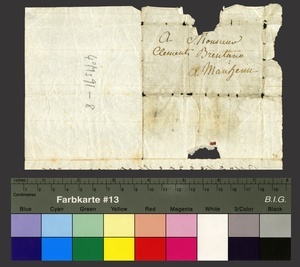 A Monsieur
Clement Brentano
à Manheim
Centimetres
Farbkarte #13
B.I.G.
Blue
Cyan
Green
Yellow
Red
Magenta
White
3/Color
Black